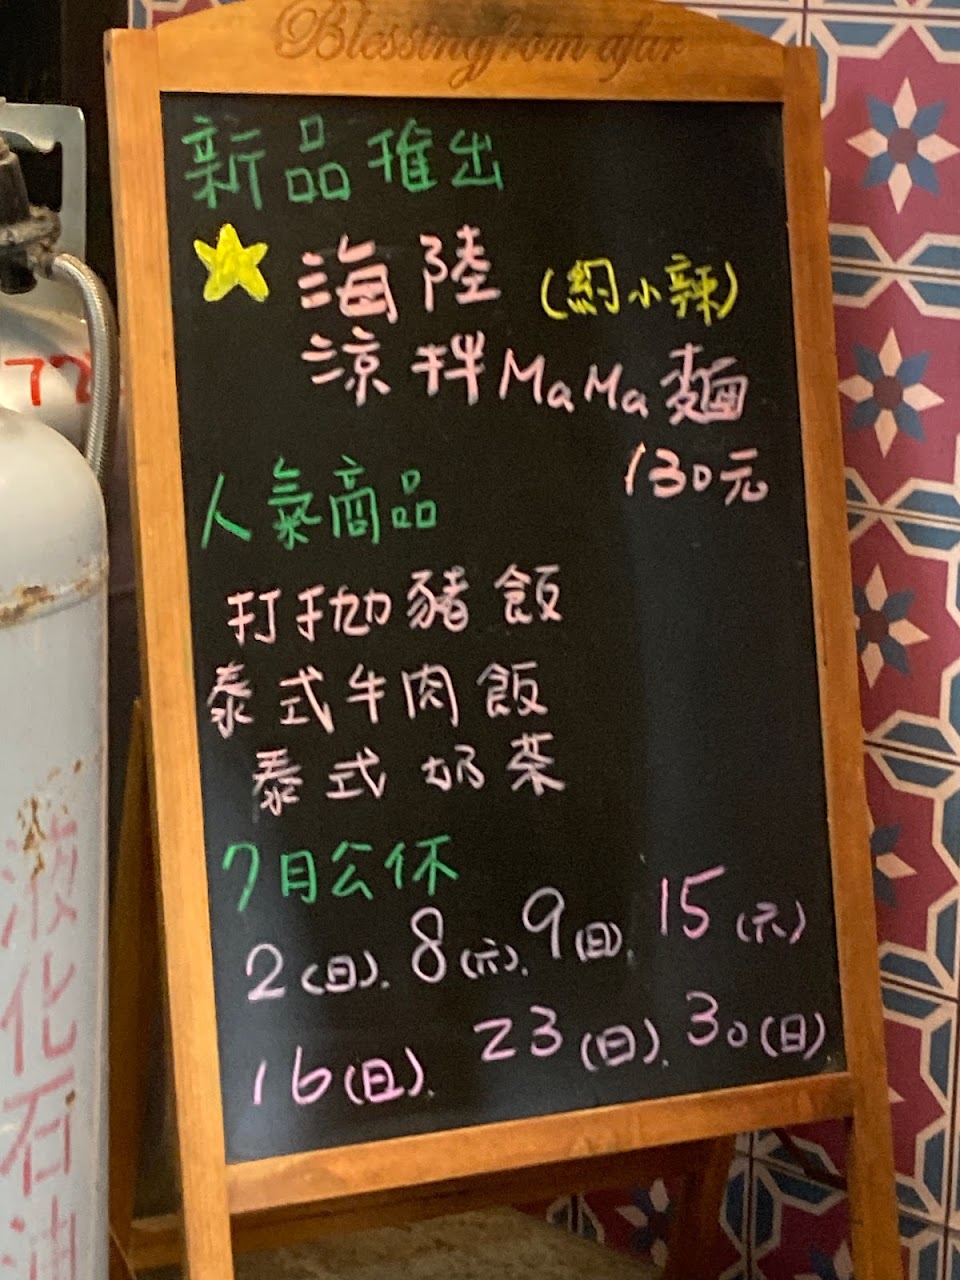 Blessing from afar
新品推出
海陸 (約小辣)
涼拌MaMa麵
130元
人氣商品
打拋豬飯
泰式牛肉飯
泰式奶茶
7月公休
2(日). 8(六). 9(日). 15(六)
16(日). 23(日). 30(日)
72
液化石油